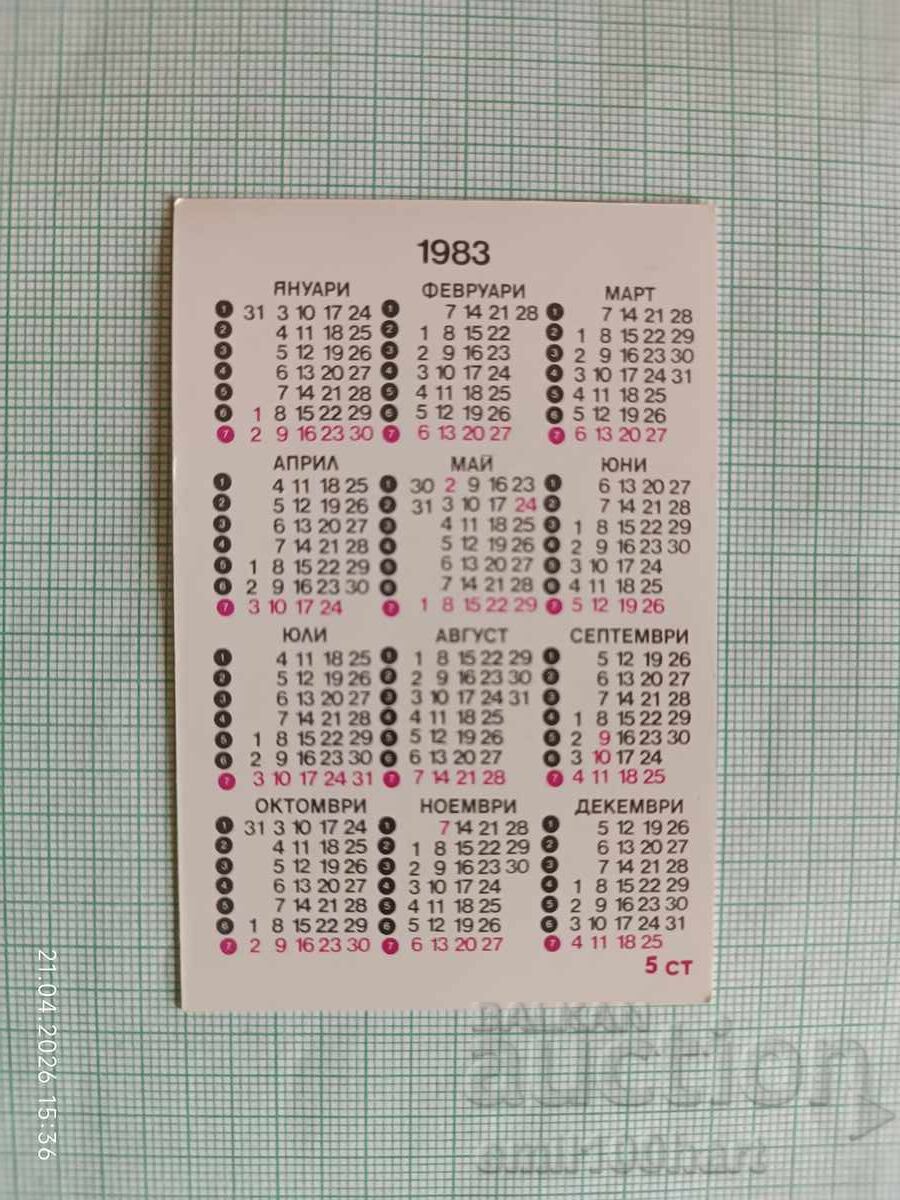 1983
ЯНУАРИ ФЕВРУАРИ МАРТ
1 31 3 10 17 24 1 7 14 21 28 1 7 14 21 28
2 4 11 18 25 2 1 8 15 22 2 1 8 15 22 29
3 5 12 19 26 3 2 9 16 23 3 2 9 16 23 30
4 6 13 20 27 4 3 10 17 24 4 3 10 17 24 31
5 7 14 21 28 5 4 11 18 25 5 4 11 18 25
6 1 8 15 22 29 6 5 12 19 26 6 5 12 19 26
7 2 9 16 23 30 7 6 13 20 27 7 6 13 20 27
АПРИЛ МАЙ ЮНИ
1 4 11 18 25 1 30 2 9 16 23 1 6 13 20 27
2 5 12 19 26 2 31 3 10 17 24 2 7 14 21 28
3 6 13 20 27 3 4 11 18 25 3 1 8 15 22 29
4 7 14 21 28 4 5 12 19 26 4 2 9 16 23 30
5 1 8 15 22 29 5 6 13 20 27 5 3 10 17 24
6 2 9 16 23 30 6 7 14 21 28 6 4 11 18 25
7 3 10 17 24 7 1 8 15 22 29 7 5 12 19 26
ЮЛИ АВГУСТ СЕПТЕМВРИ
1 4 11 18 25 1 1 8 15 22 29 1 5 12 19 26
2 5 12 19 26 2 2 9 16 23 30 2 6 13 20 27
3 6 13 20 27 3 3 10 17 24 31 3 7 14 21 28
4 7 14 21 28 4 4 11 18 25 4 1 8 15 22 29
5 1 8 15 22 29 5 5 12 19 26 5 2 9 16 23 30
6 2 9 16 23 30 6 6 13 20 27 6 3 10 17 24
7 3 10 17 24 31 7 7 14 21 28 7 4 11 18 25
ОКТОМВРИ НОЕМВРИ ДЕКЕМВРИ
1 31 3 10 17 24 1 7 14 21 28 1 5 12 19 26
2 4 11 18 25 2 1 8 15 22 29 2 6 13 20 27
3 5 12 19 26 3 2 9 16 23 30 3 7 14 21 28
4 6 13 20 27 4 3 10 17 24 4 1 8 15 22 29
5 7 14 21 28 5 4 11 18 25 5 2 9 16 23 30
6 1 8 15 22 29 6 5 12 19 26 6 3 10 17 24 31
7 2 9 16 23 30 7 6 13 20 27 7 4 11 18 25
5 СТ
21.04.2026 15:36
BALKAN
auction